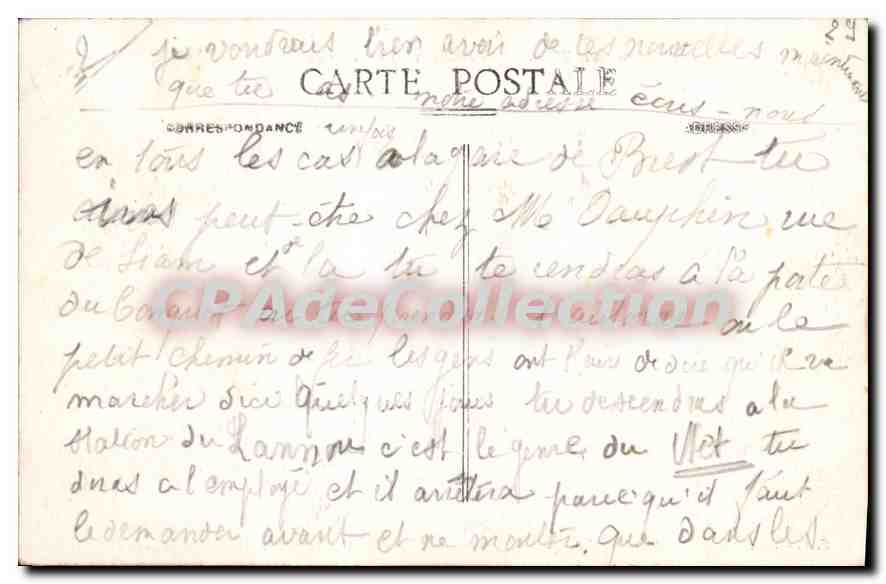 2 29
je voudrais bien avoir de tes nouvelles maintenant
CARTE POSTALE
que tu as notre adresse écris-nous
CORRESPONDANCE ADRESSE
une fois
en tous les cas a la gare de Brest tu
iras peut-être chez Me Dauphin rue
de Siam et de la tu te rendras à la porte
CPAdeCollection
du Conquet tu ou le
petit chemin de fer les gens ont l'air de dire qu'il va
marcher d'ici quelques jours tu descendras a la
station du Lannou c'est le genre du tu
diras a l'employé et il arrêtera parce qu'il faut
le demander avant et ne monter que dans les